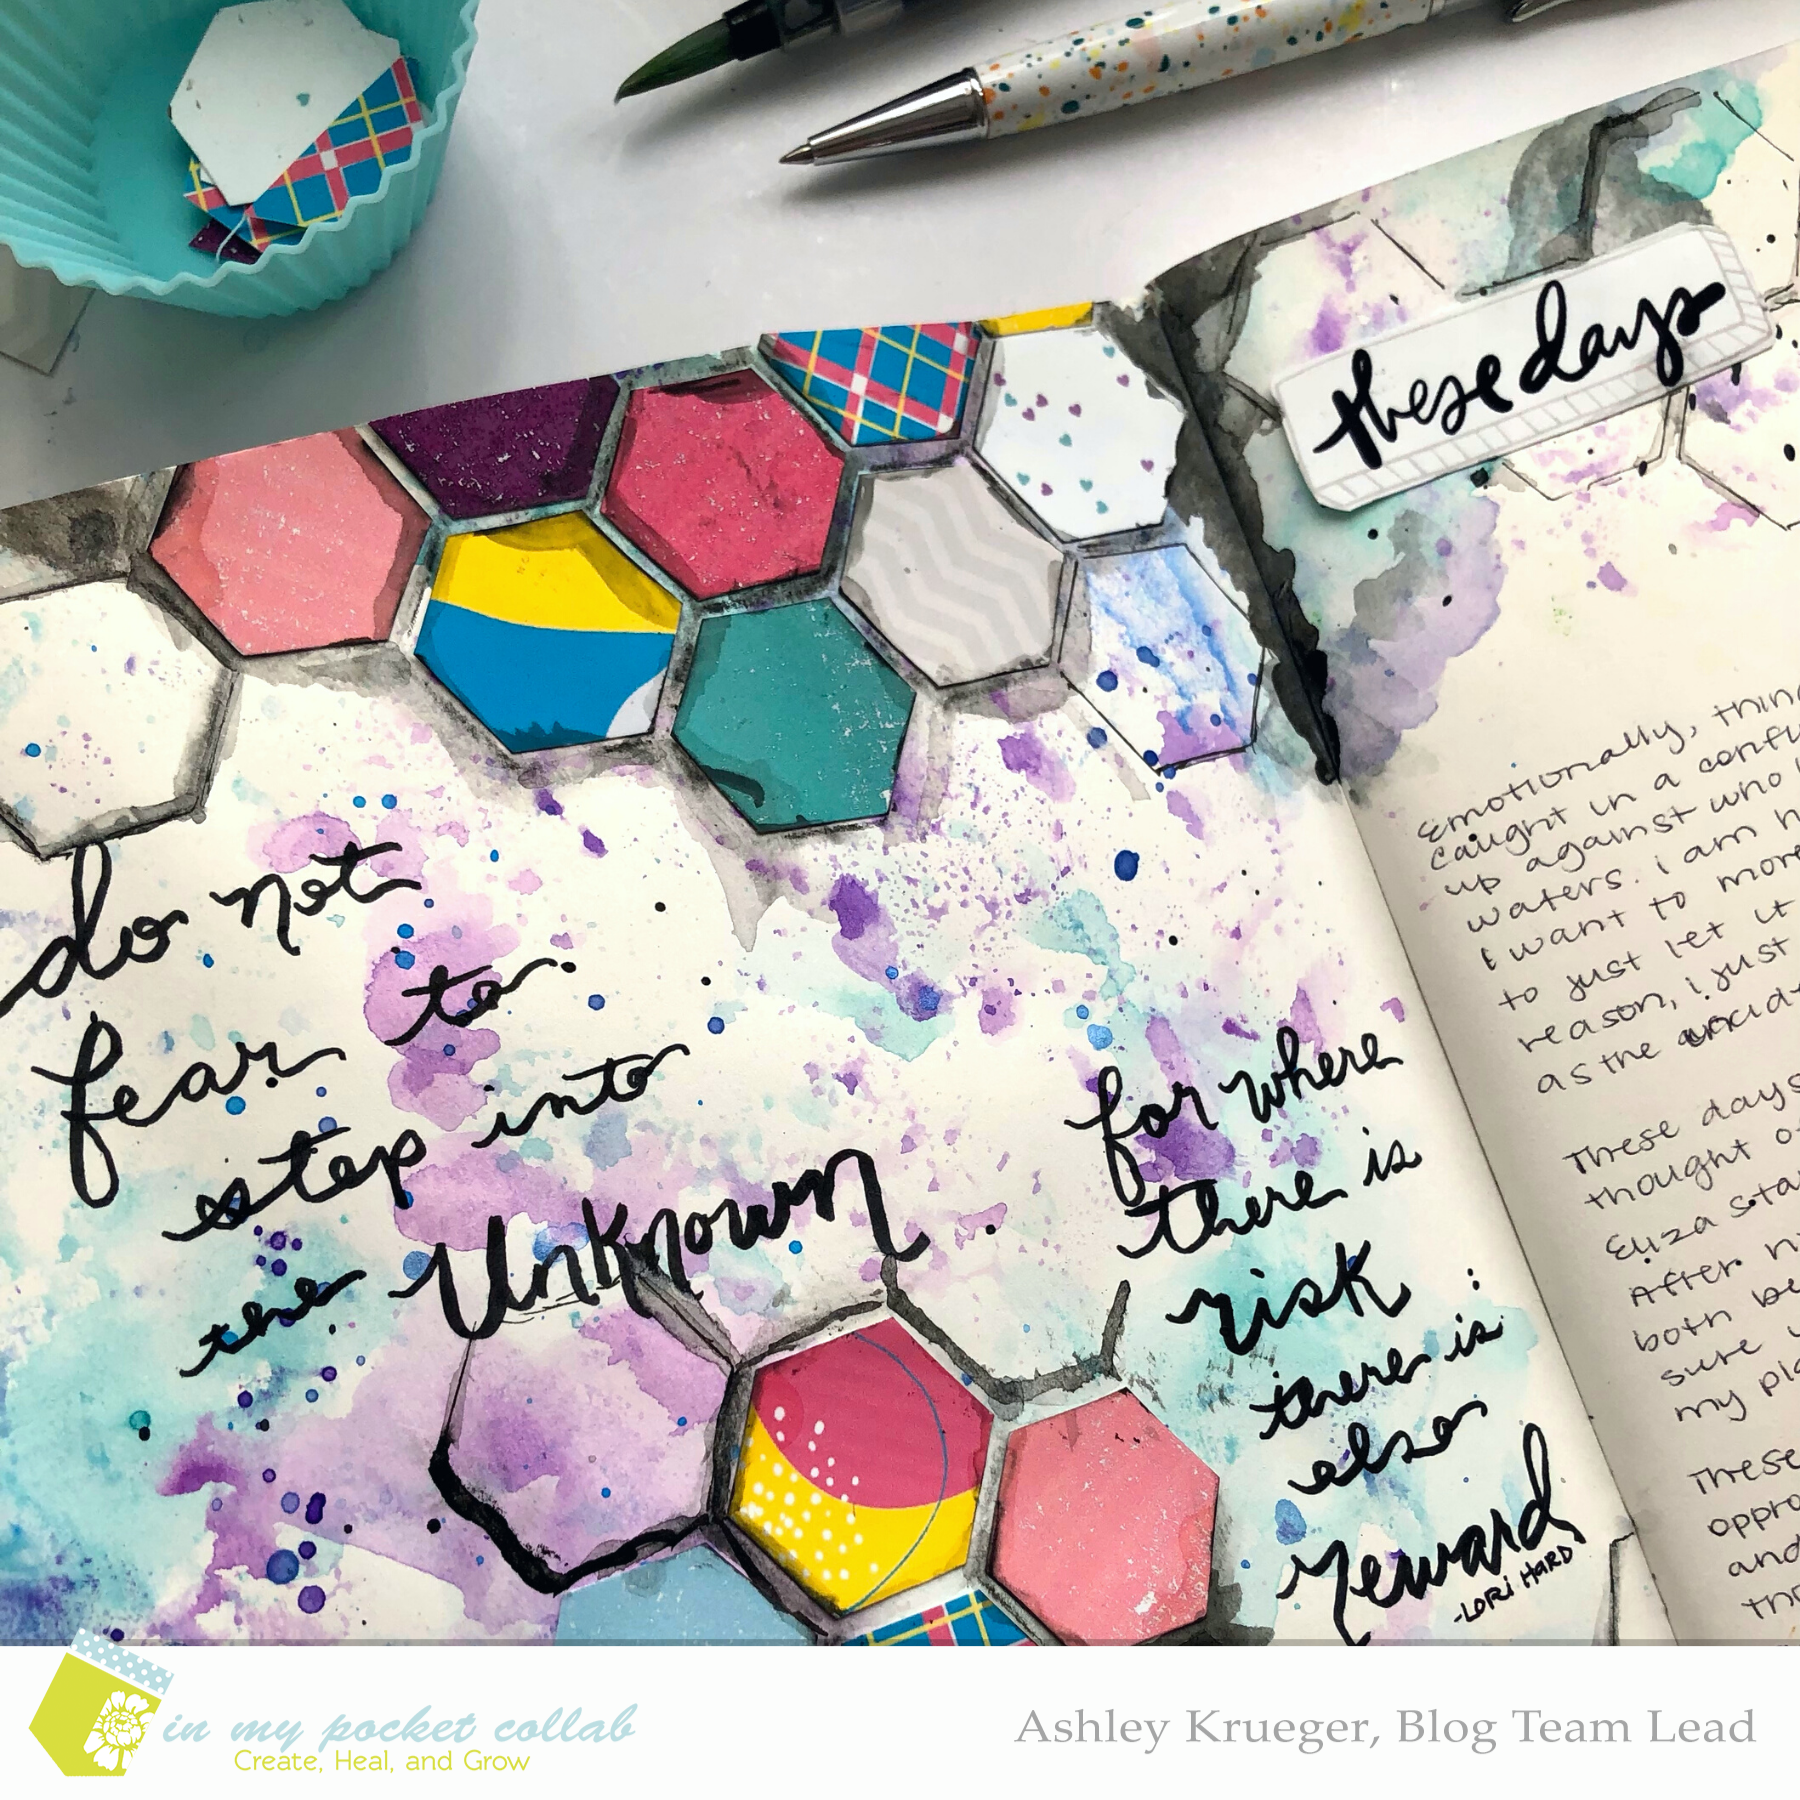 these days
do not
fear to
step into
the Unknown
for where
there is
risk
there is
also
reward
-LORi HARD
Emotionally,
caught in a
up against who
waters. i am
i want to more
to just let it
reason, i just
as the
These days
thought
Eliza
After
both
sure
my
These
and
in my pocket collab
Create, Heal, and Grow
Ashley Krueger, Blog Team Lead